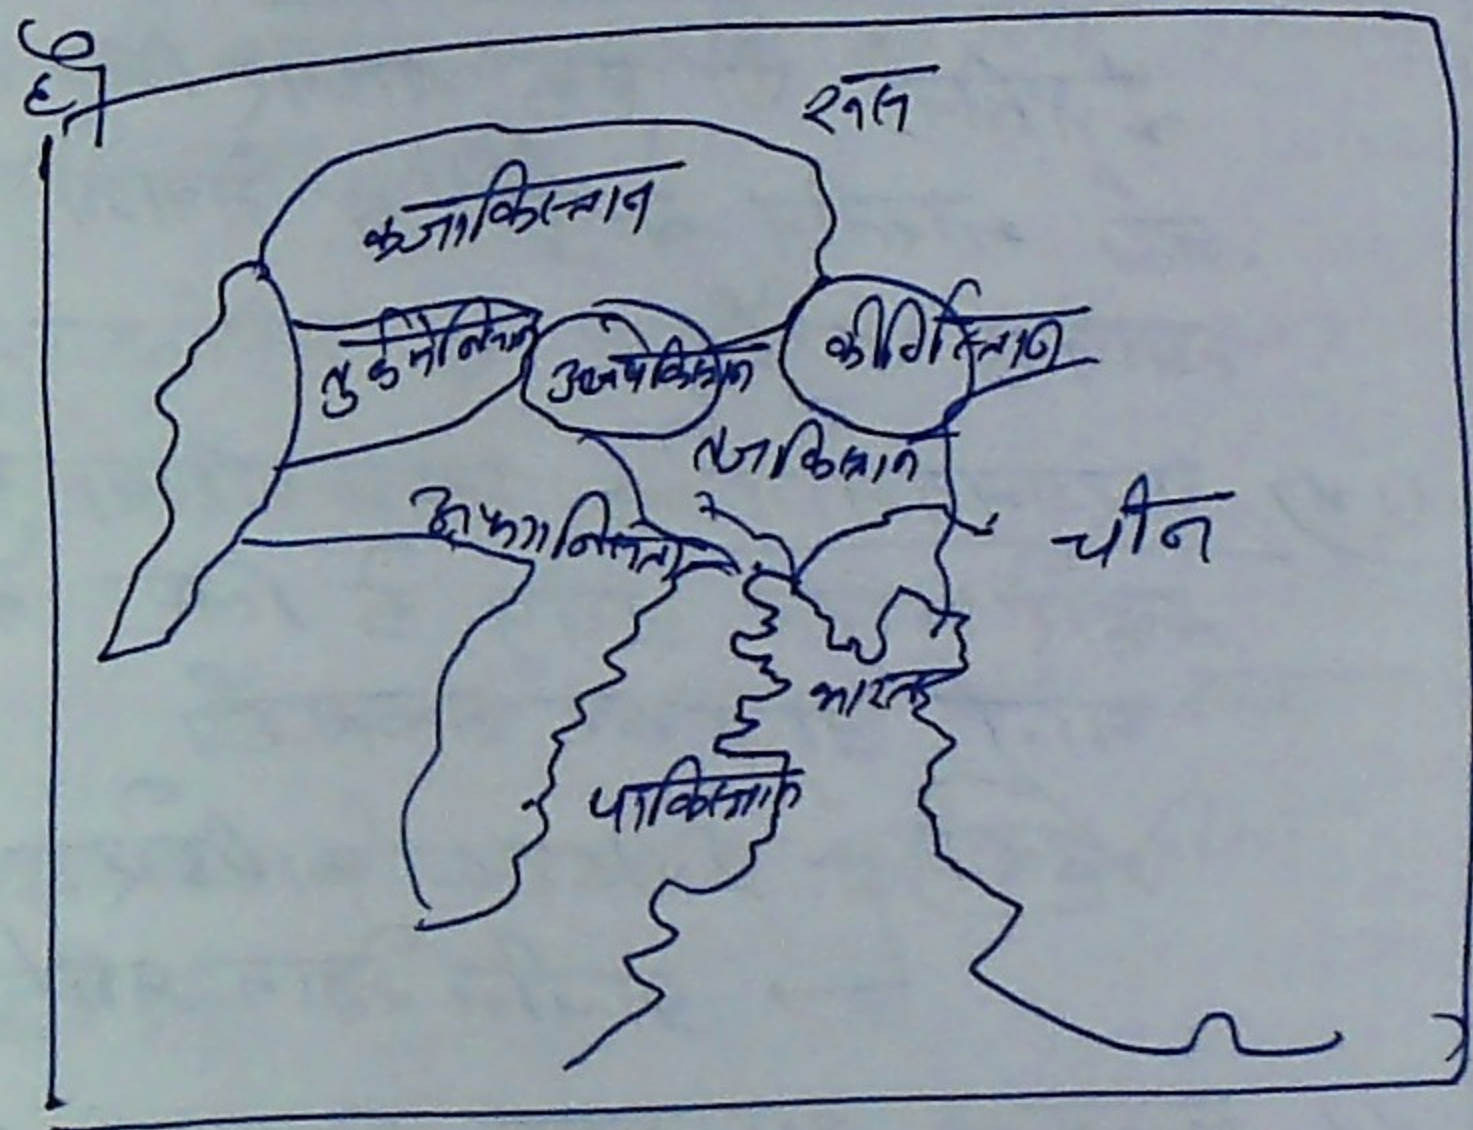 रूस
कजाकिस्तान
तुर्कमेनिस्तान
उज्बेकिस्तान
कीर्गिस्तान
तजाकिस्तान
अफगानिस्तान
चीन
भारत
पाकिस्तान